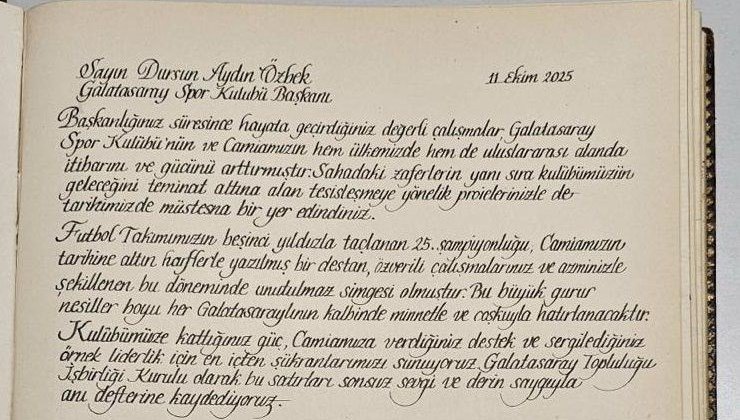 Sayın Dursun Aydın Özbek
11 Ekim 2025
Galatasaray Spor Kulübü Başkanı
Başkanlığınız süresince hayata geçirdiğiniz değerli çalışmalar, Galatasaray
Spor Kulübü'nün ve Camiamızın hem ülkemizde hem de uluslararası alanda
itibarını ve gücünü arttırmıştır. Sahadaki zaferlerin yanı sıra kulübümüzün
geleceğini teminat altına alan tesisleşmeye yönelik projelerinizle de
tarihimizde müstesna bir yer edindiniz.
Futbol Takımımızın beşinci yıldızla taçlanan 25. şampiyonluğu, Camiamızın
tarihine altın harflerle yazılmış bir destan, özverili çalışmalarınız ve azminizle
şekillenen bu döneminde unutulmaz simgesi olmuştur. Bu büyük gurur
nesiller boyu her Galatasaraylının kalbinde minnetle ve coşkuyla hatırlanacaktır.
Kulübümüze kattığınız güç, Camiamıza verdiğiniz destek ve sergilediğiniz
örnek liderlik için en içten şükranlarımızı sunuyoruz. Galatasaray Topluluğu
İşbirliği Kurulu olarak bu satırları sonsuz sevgi ve derin saygıyla
anı defterine kaydediyoruz.